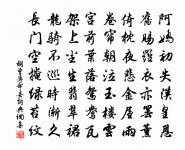 阿嬌初失漢皇恩
舊賜羅衣亦罷熏
倚枕夜悲金屋雨
卷簾朝泣玉樓雲
宮前葉落鴛鴦瓦
架上塵生翡翠裙
龍騎不巡時漸久
長門空掩綠苔紋
胡曾薄命妾詞典網書